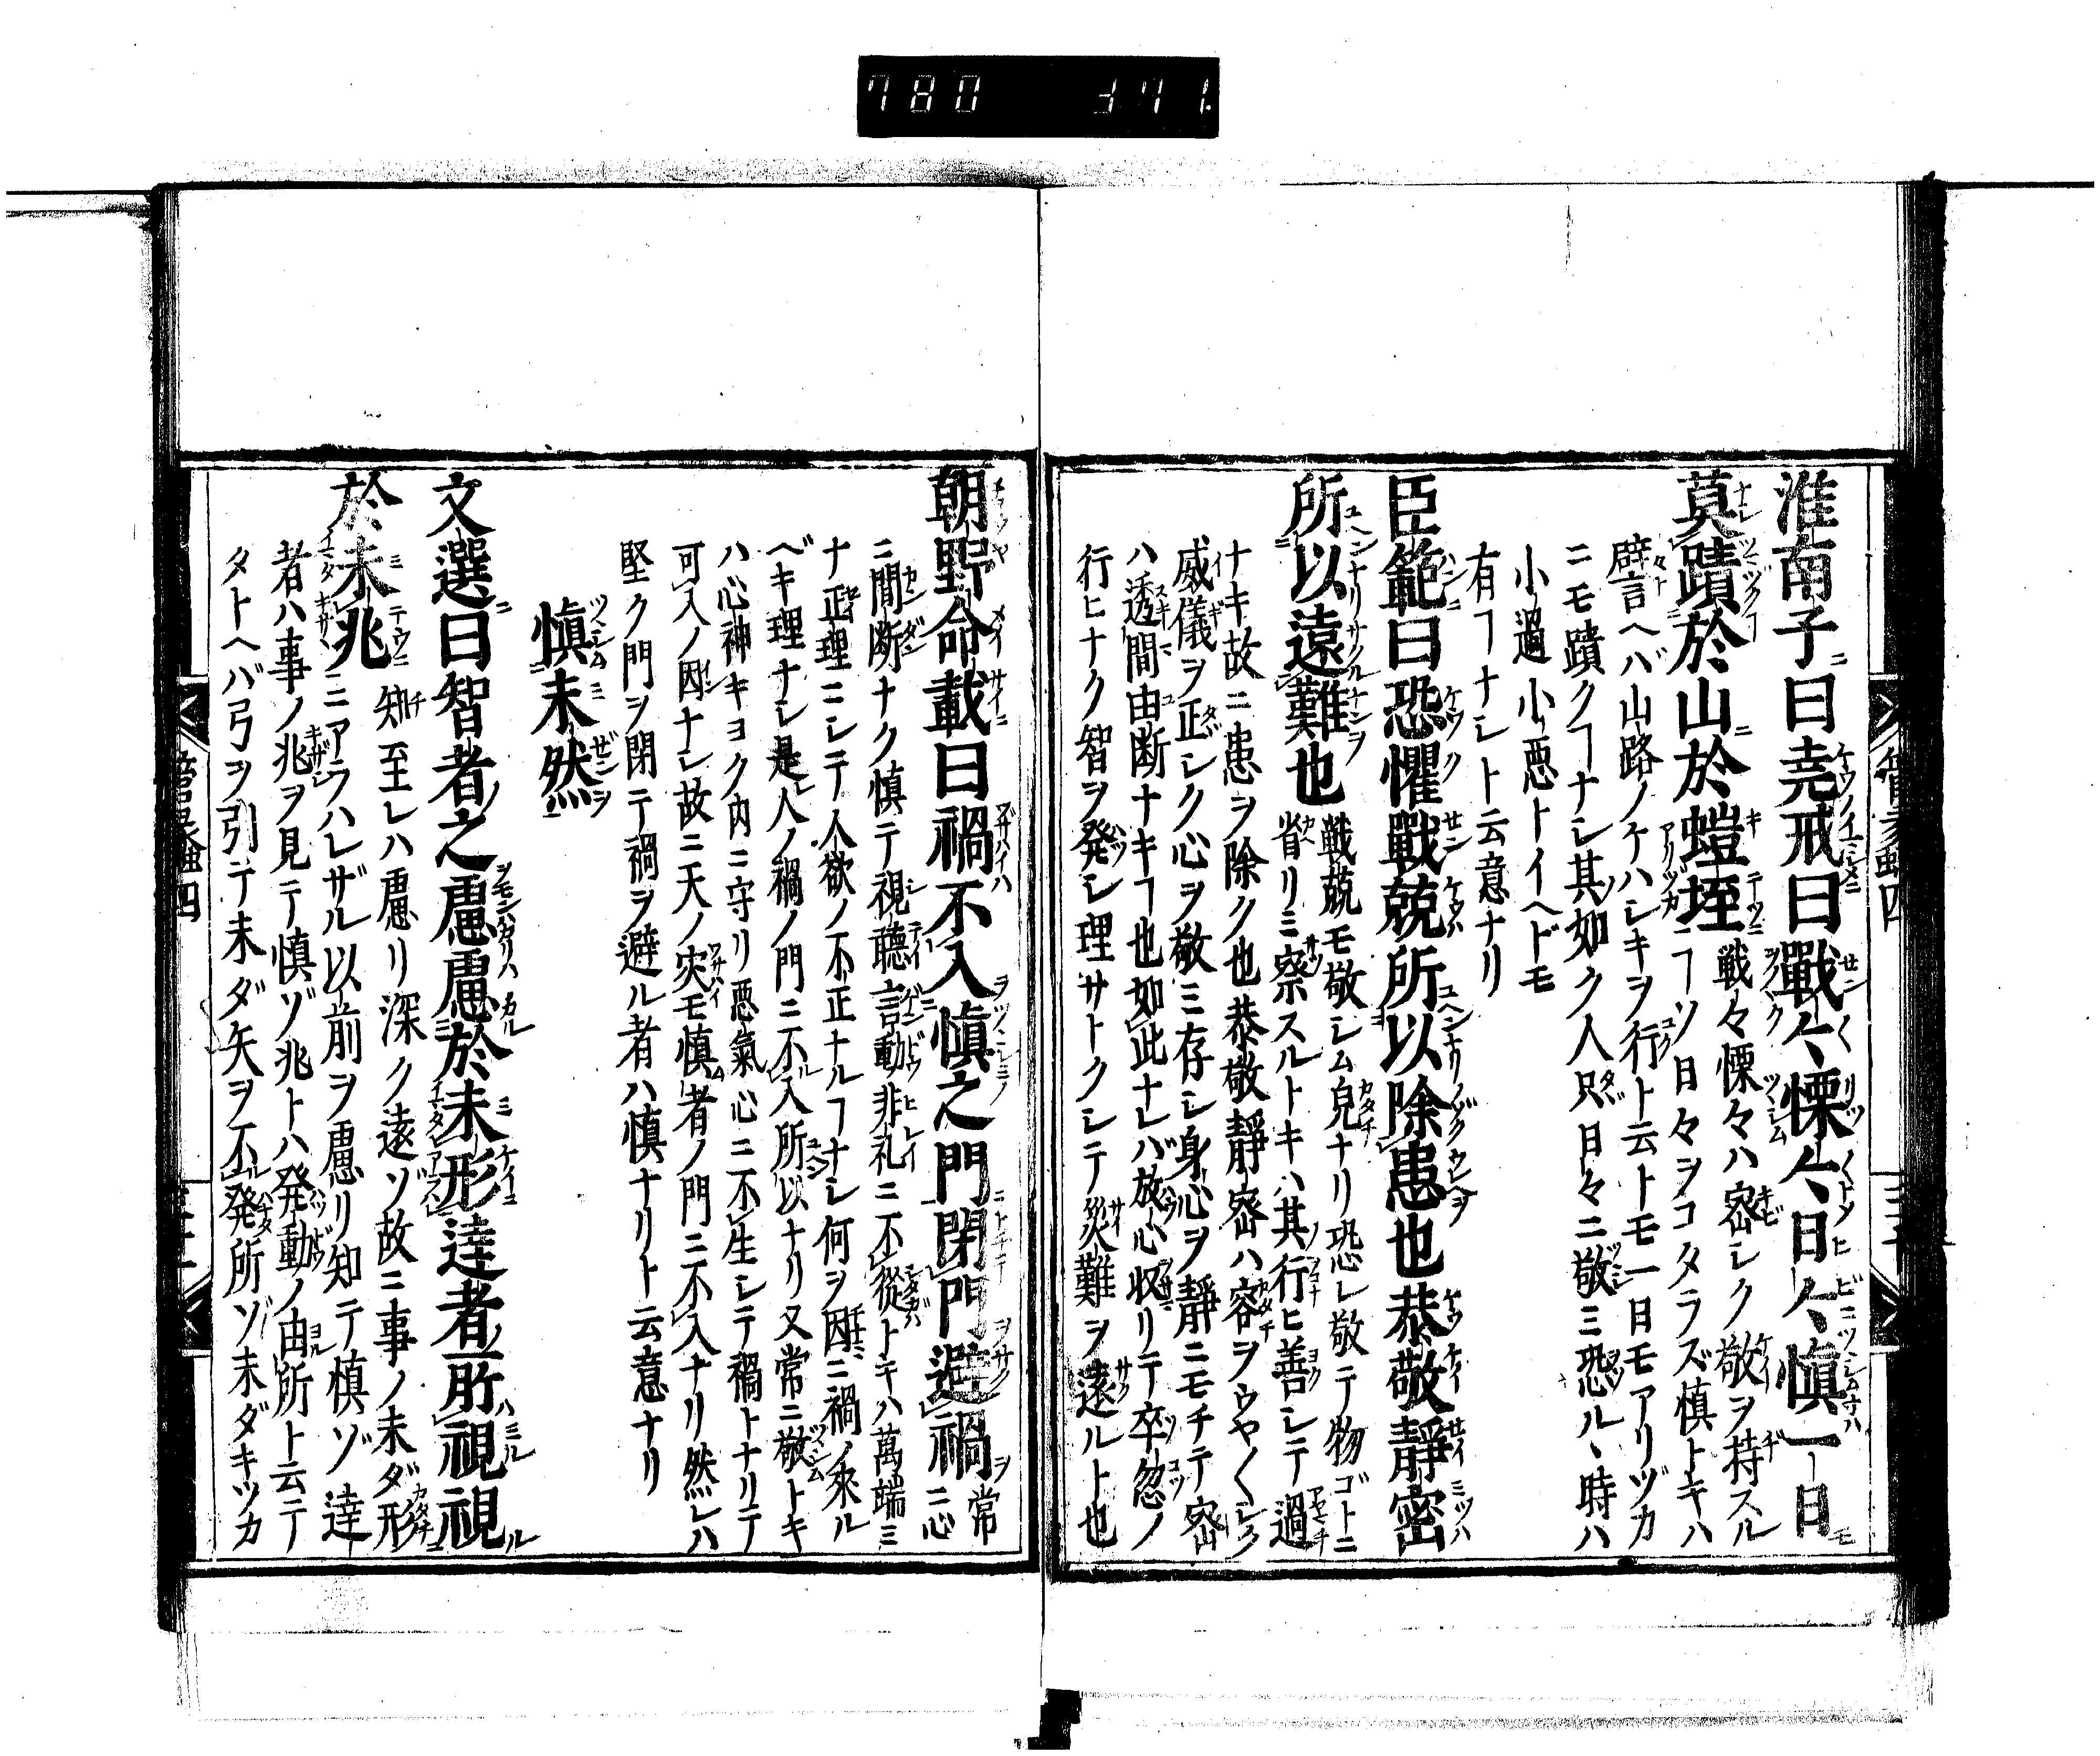 淮南子曰堯戒曰戰々慄々日々慎一日
莫蹟於山於螘垤 戦々慄々ハ密シク敬ヲ持スル
ヿソ日々ヲコタラズ慎トキハ
譬言ヘバ山路ノケハシキヲ行ト云トモ一日モアリヅカ
ニモ蹟クヿナシ其如ク人只日々ニ敬ミ恐ル丶時ハ
小過小悪トイヘドモ
有ヿナシト云意ナリ
臣範曰恐懼戰兢所以除患也恭敬靜密
所以遠難也 戦兢モ敬シム皃ナリ恐レ敬テ物ゴトニ
省リミ察スルトキハ其行ヒ善シテ過
ナキ故ニ患ヲ除ク也恭敬靜密ハ容ヲウヤ〱シク
威儀ヲ正シク心ヲ敬ミ存シ身心ヲ靜ニモチテ密
ハ透間由断ナキヿ也如此ナレバ放心収リテ卒忽ノ
行ヒナク智ヲ発シ理サトクシテ災難ヲ遠ルト也
朝野命載曰禍不入慎之門閉門避禍 常ニ心
ニ間断ナク慎テ視聽言動非礼ニ不從トキハ萬端ミ
ナ正理ニシテ人欲ノ不正ナルヿナシ何ヲ因ニ禍ノ来ル
ベキ理ナシ是人ノ禍ノ門ニ不入所以ナリ又常ニ敬トキ
ハ心神キヨク内ニ守リ悪氣心ニ不生シテ禍トナリテ
可入ノ因ナシ故ニ天ノ灾モ慎者ノ門ニ不入ナリ然レハ
堅ク門ヲ閉テ禍ヲ避ル者ハ慎ナリト云意ナリ
慎未然
文選曰智者之慮慮於未形達者所視視
於未兆 知至レハ慮リ深ク遠ゾ故ニ事ノ未ダ形
ニアラハレザル以前ヲ慮リ知テ慎ゾ達
者ハ事ノ兆ヲ見テ慎ゾ兆トハ発動ノ由所ト云テ
タトヘバ弓ヲ引テ未ダ矢ヲ不発所ゾ未ダキツカ